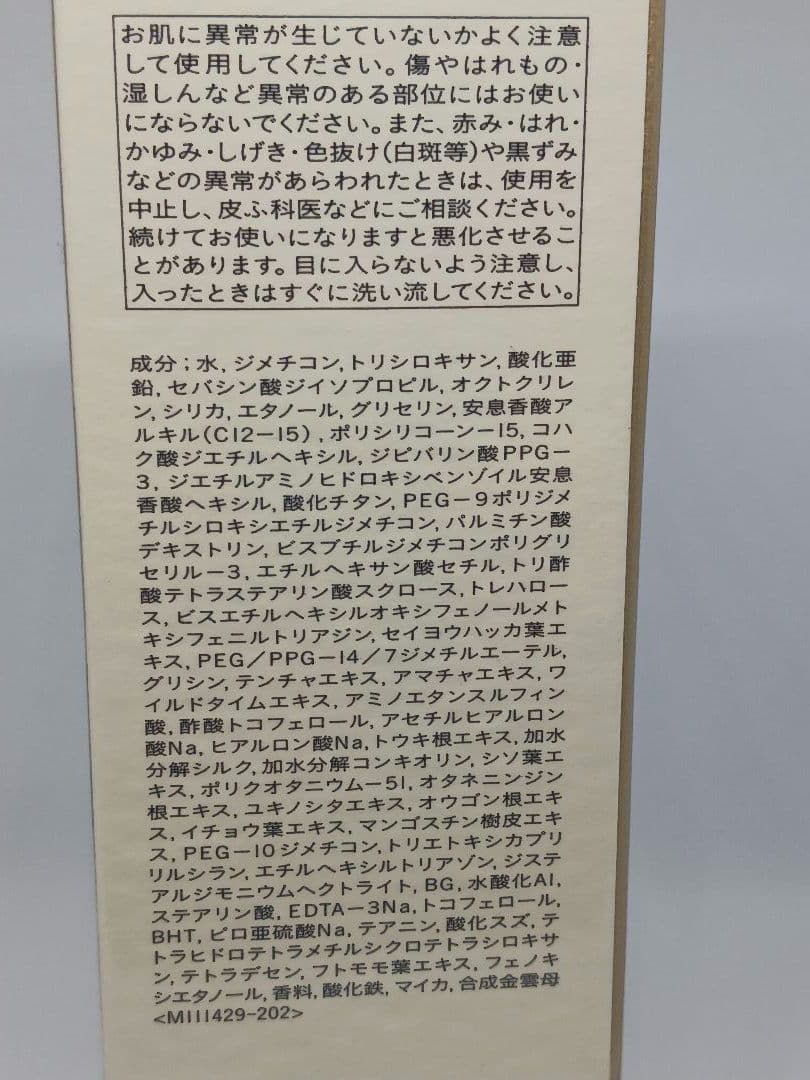 お肌に異常が生じていないかよく注意
して使用してください。傷やはれもの・
湿しんなど異常のある部位にはお使い
にならないでください。また、赤み・はれ・
かゆみ・しげき・色抜け(白斑等)や黒ずみ
などの異常があらわれたときは、使用を
中止し、皮ふ科医などにご相談ください。
続けてお使いになりますと悪化させるこ
とがあります。目に入らないよう注意し、
入ったときはすぐに洗い流してください。
成分；水, ジメチコン, トリシロキサン, 酸化亜
鉛, セバシン酸ジイソプロピル, オクトクリレ
ン, シリカ, エタノール, グリセリン, 安息香酸ア
ルキル(C12-15) , ポリシリコーン-15, コハ
ク酸ジエチルヘキシル, ジピバリン酸PPG-
3, ジエチルアミノヒドロキシベンゾイル安息
香酸ヘキシル, 酸化チタン, PEG-9ポリジメ
チルシロキシエチルジメチコン, パルミチン酸
デキストリン, ビスブチルジメチコンポリグリ
セリル-3, エチルヘキサン酸セチル, トリ酢
酸テトラステアリン酸スクロース, トレハロー
ス, ビスエチルヘキシルオキシフェノールメト
キシフェニルトリアジン, セイヨウハッカ葉エ
キス, PEG/PPG-14/7ジメチルエーテル,
グリシン, テンチャエキス, アマチャエキス, ワ
イルドタイムエキス, アミノエタンスルフィン
酸, 酢酸トコフェロール, アセチルヒアルロン
酸Na, ヒアルロン酸Na, トウキ根エキス, 加水
分解シルク, 加水分解コンキオリン, シソ葉エ
キス, ポリクオタニウム-51, オタネニンジン
根エキス, ユキノシタエキス, オウゴン根エキ
ス, イチョウ葉エキス, マンゴスチン樹皮エキ
ス, PEG-10ジメチコン, トリエトキシカプリ
リルシラン, エチルヘキシルトリアゾン, ジステ
アルジモニウムヘクトライト, BG, 水酸化Al,
ステアリン酸, EDTA-3Na, トコフェロール,
BHT, ピロ亜硫酸Na, テアニン, 酸化スズ, テ
トラヒドロテトラメチルシクロテトラシロキサ
ン, テトラデセン, フトモモ葉エキス, フェノキ
シエタノール, 香料, 酸化鉄, マイカ, 合成金雲母
<M111429-202>